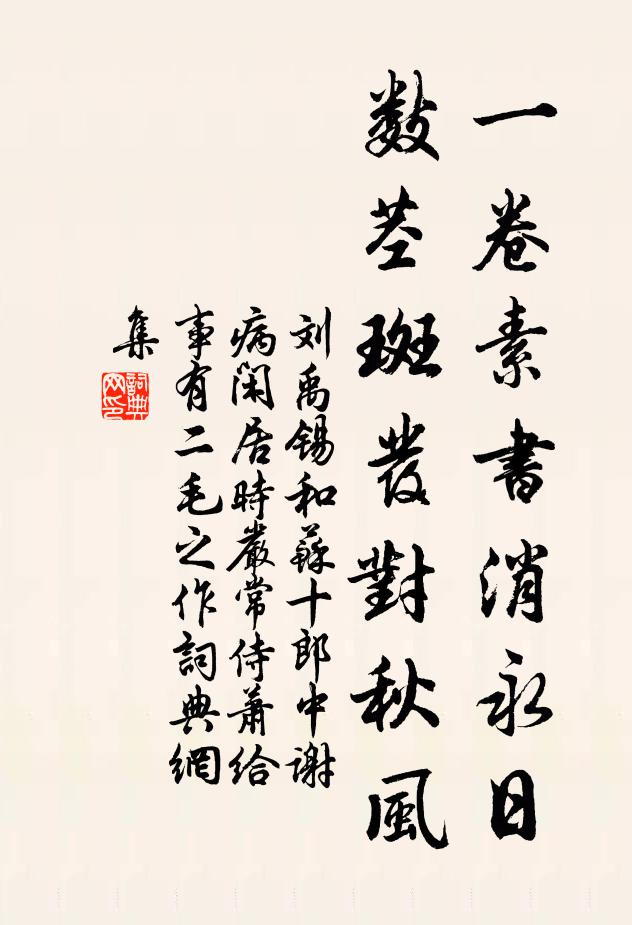 一卷素書消永日
数茎斑發對秋風
刘禹锡和蘇十郎中謝
病闲居時嚴常侍蕭給
事有二毛之作詞典網
集
詞典
网印